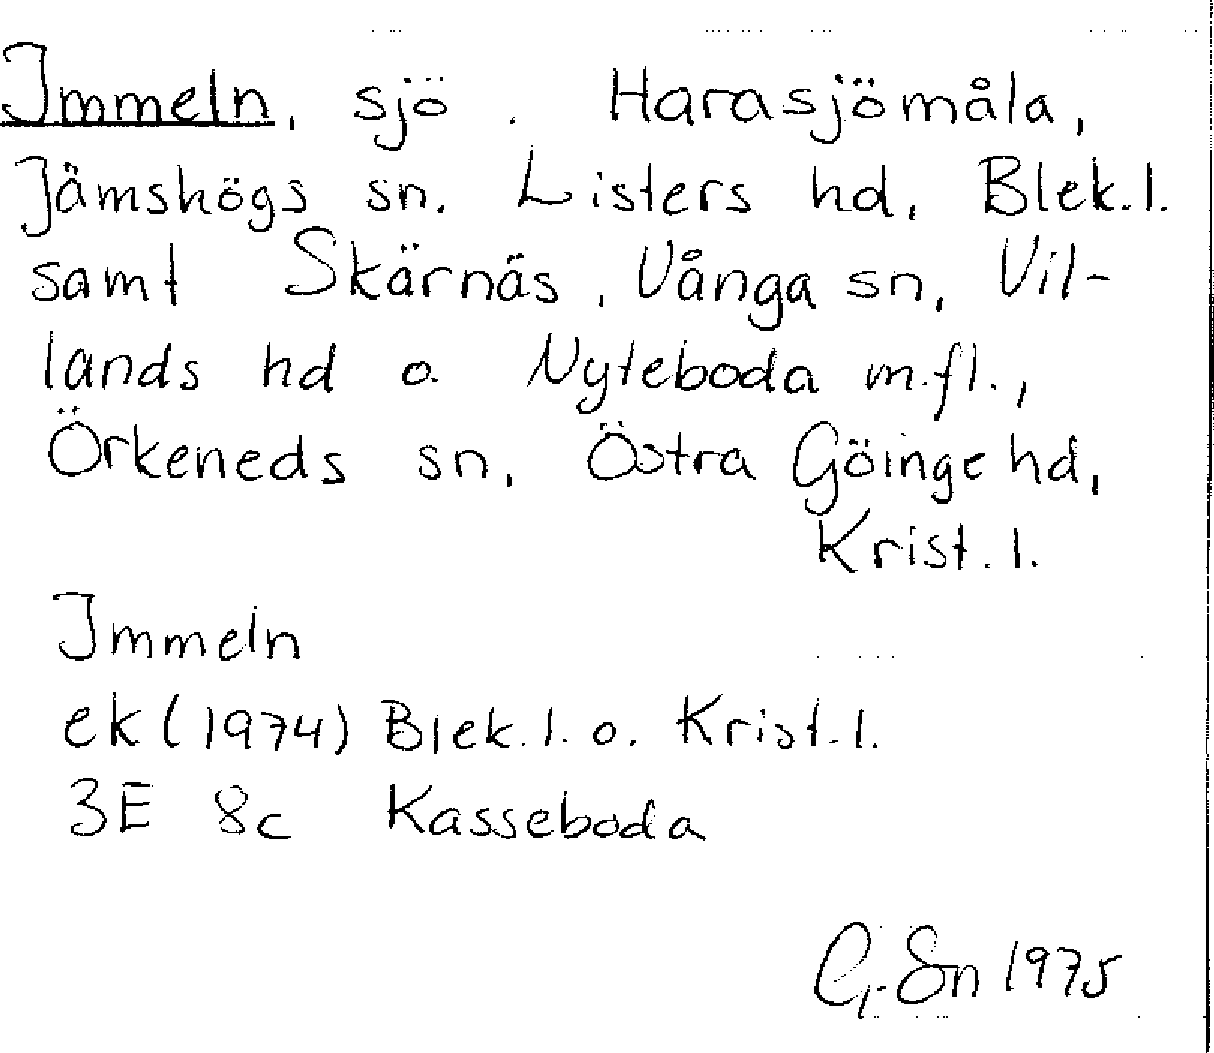 Immeln, sjö. Harasjömåla,
Jämshögs sn. Listers hd, Blek.l.
samt Skärnäs, Vånga sn, Vil-
lands hd o. Nyteboda m.fl.,
Örkeneds sn, Östra Göinge hd,
Krist.l.
Immeln
ek (1974) Blek.l. o. Krist.l.
3E 8c Kasseboda
1975